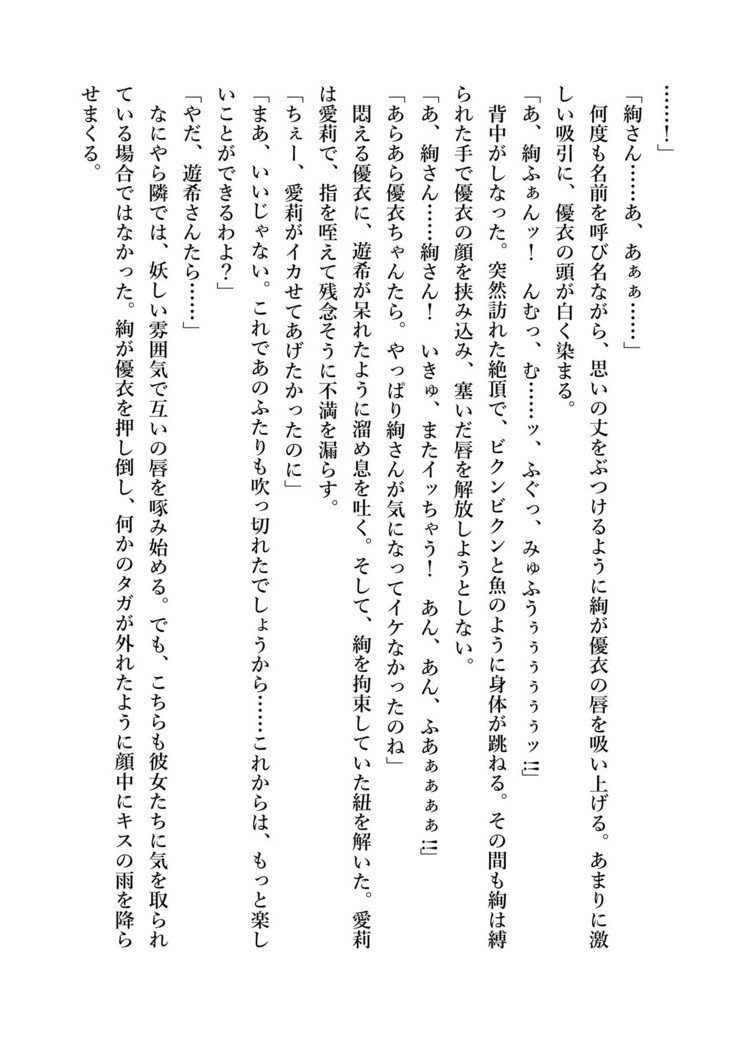 ……！」
「絢さん……あ、あぁぁ……」
　何度も名前を呼び名ながら、思いの丈をぶつけるように絢が優衣の唇を吸い上げる。あまりに激
しい吸引に、優衣の頭が白く染まる。
「あ、絢ふぁんッ！　んむっ、む……ッ、ふぐっ、みゅふうぅぅぅぅぅッ!!」
　背中がしなった。突然訪れた絶頂で、ビクンビクンと魚のように身体が跳ねる。その間も絢は縛
られた手で優衣の顔を挟み込み、塞いだ唇を解放しようとしない。
「あ、絢さん……絢さん！　いきゅ、またイッちゃう！　あん、あん、ふあぁぁぁぁ!!」
「あらあら優衣ちゃんたら。やっぱり絢さんが気になってイケなかったのね」
　悶える優衣に、遊希が呆れたように溜め息を吐く。そして、絢を拘束していた紐を解いた。愛莉
は愛莉で、指を咥えて残念そうに不満を漏らす。
「ちぇー、愛莉がイカせてあげたかったのに」
「まあ、いいじゃない。これであのふたりも吹っ切れたでしょうから……これからは、もっと楽し
いことができるわよ？」
「やだ、遊希さんたら……」
　なにやら隣では、妖しい雰囲気で互いの唇を啄み始める。でも、こちらも彼女たちに気を取られ
ている場合ではなかった。絢が優衣を押し倒し、何かのタガが外れたように顔中にキスの雨を降ら
せまくる。